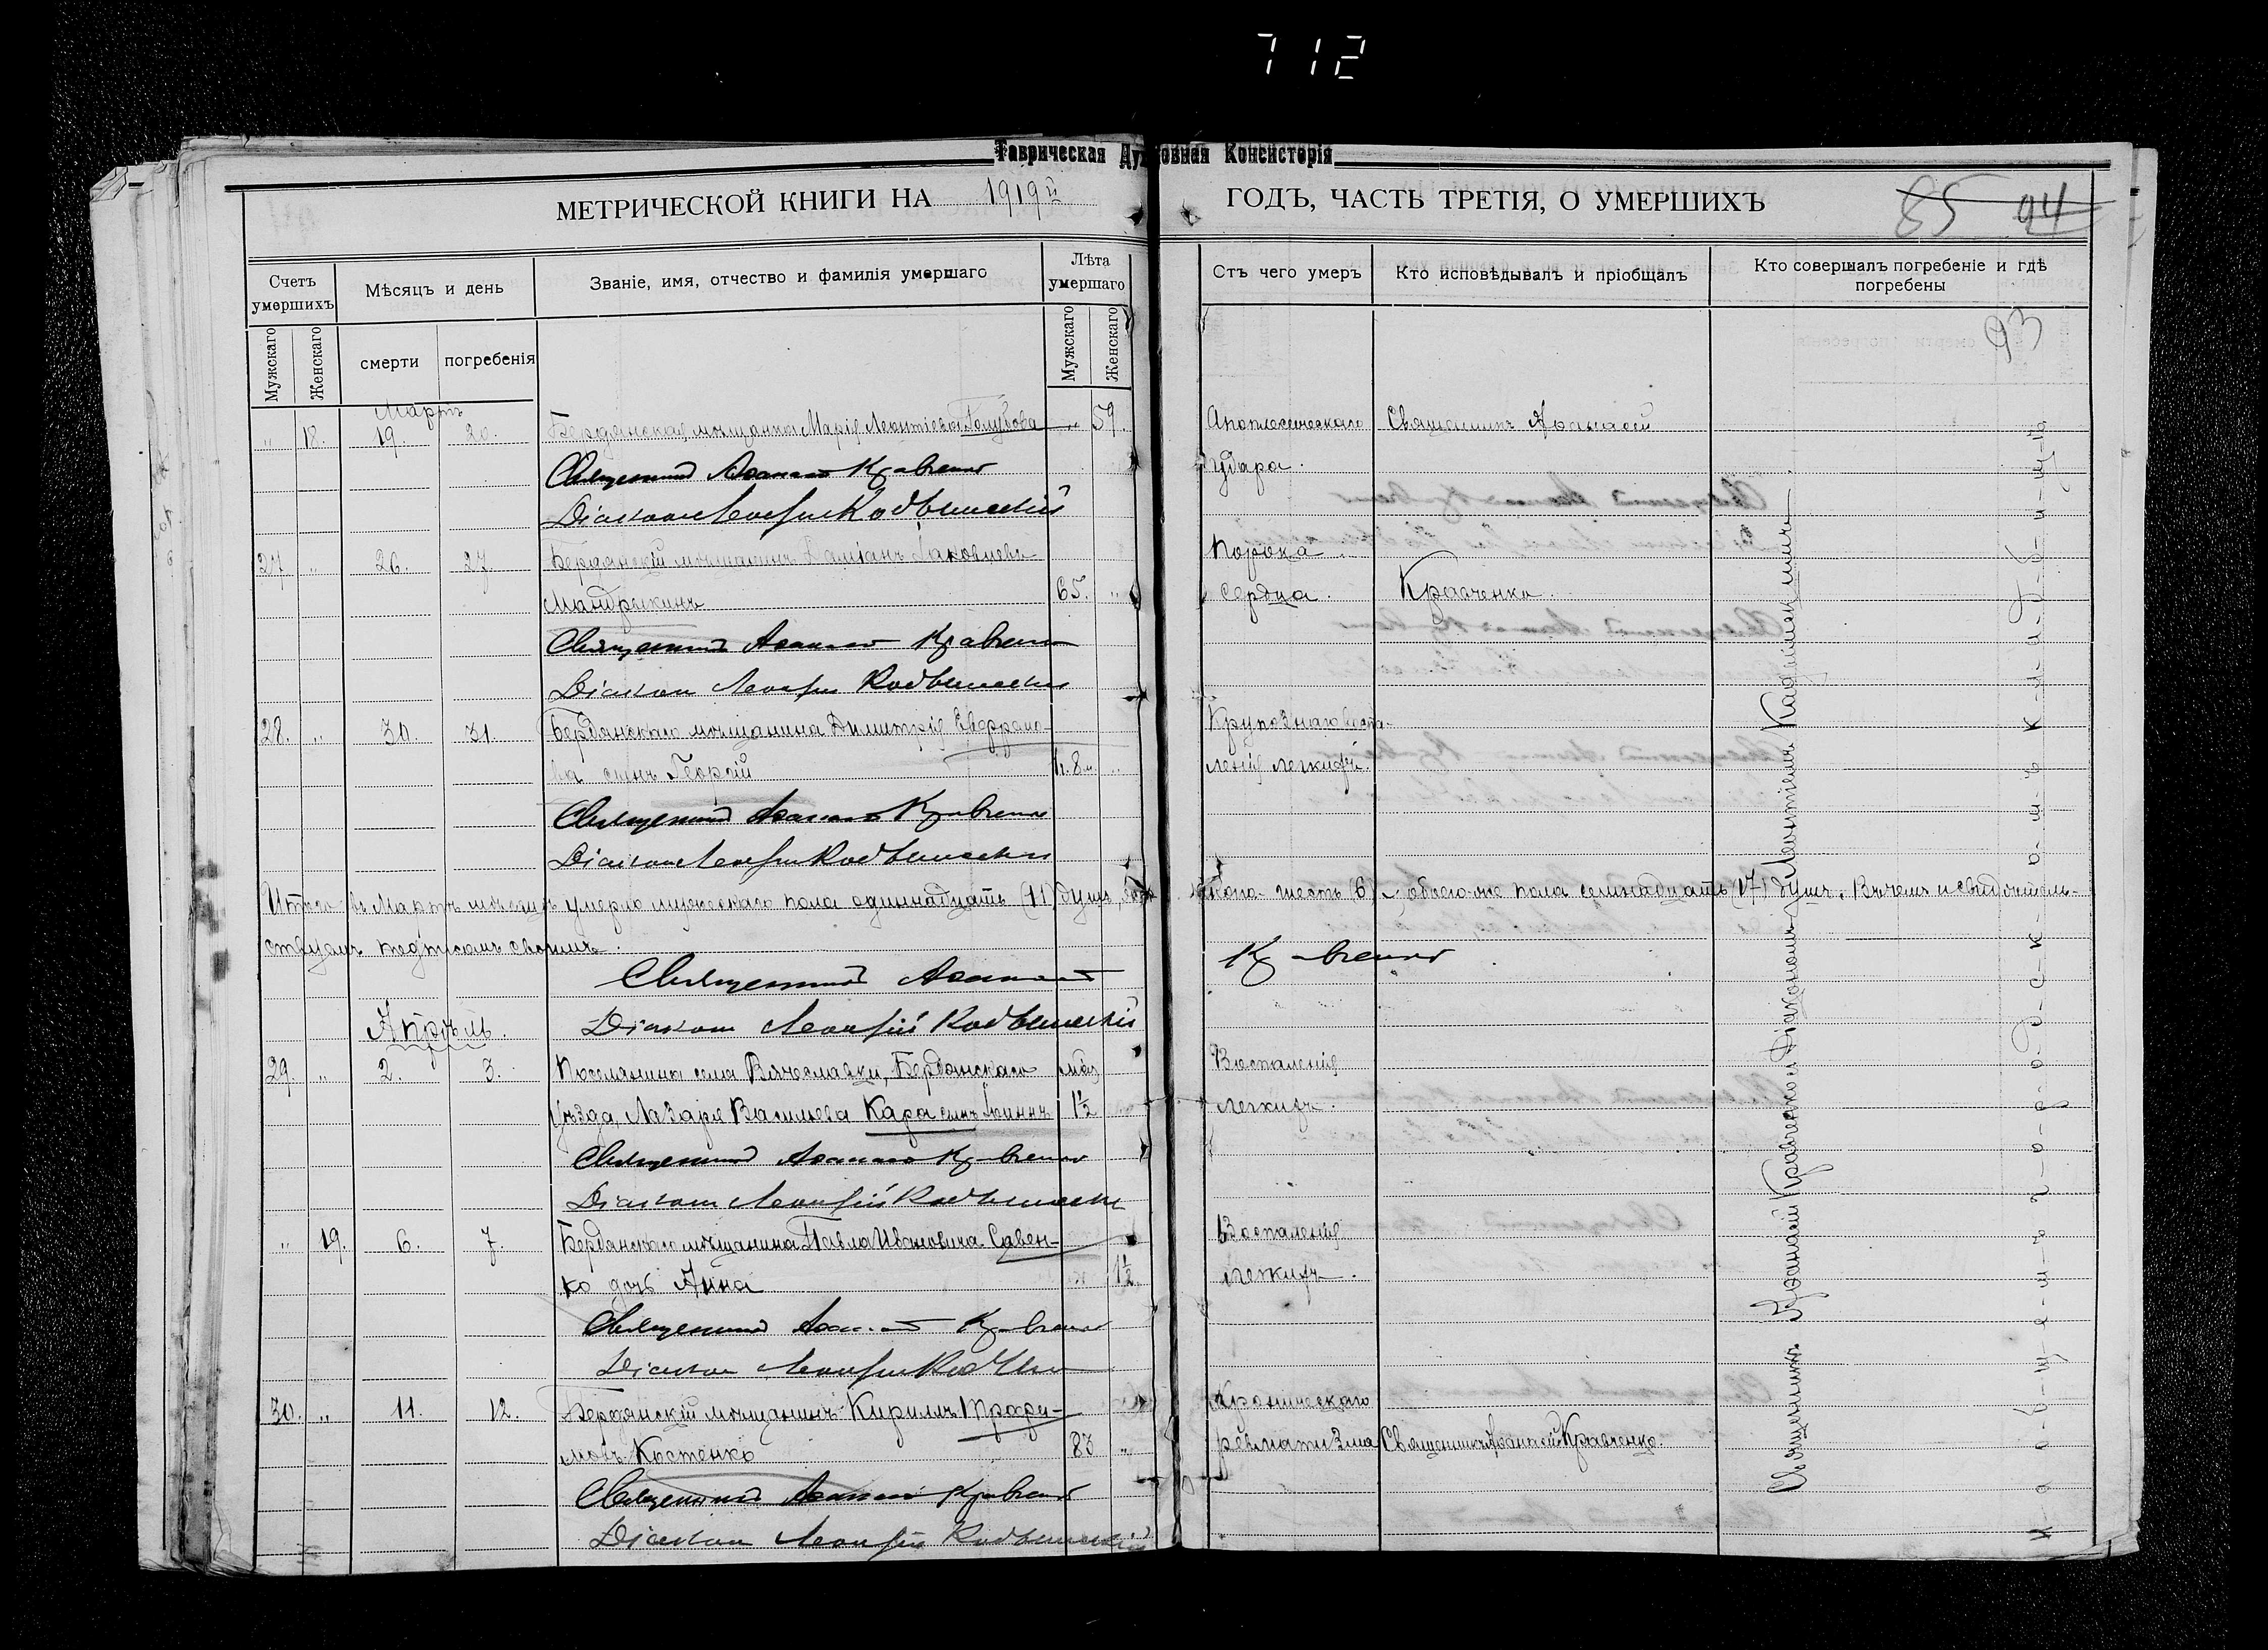 712
Таврическая Духовная Консисторія
МЕТРИЧЕСКОЙ КНИГИ НА 1919й ГОДЪ, ЧАСТЬ ТРЕТІЯ, О УМЕРШИХЪ
85 94
93
Счетъ умершихъ
Мѣсяцъ и день
Званіе, имя, отчество и фамилія умершаго
Лѣта умершаго
Отъ чего умеръ
Кто исповѣдывалъ и пріобщалъ
Кто совершалъ погребеніе и гдѣ погребены
Мужскаго
Женскаго
смерти
погребенія
Мужскаго
Женскаго
Мартъ
„ 18. 19. 20. Бердянская мѣщанка Марія Леонтіева Голубова „ 59. Апоплексическаго Священникъ Аѳанасій
удара.
Священникъ Аѳанасій Кравченко
Діаконъ Леонтій
27. „ 26. 27. Бердянскій мѣщанинъ Даміанъ Іаковлевъ Порока
Мандрыкинъ 65. „ сердца. Кравченко.
Священникъ Аѳанасій Кравченко
Діаконъ Леонтій
28. „ 30. 31. Бердянскаго мѣщанина Димитрія Евфремо- Крупознаго воспа-
ва сынъ Георгій 1г. 8м. „ ленія легкихъ.
Священникъ Аѳанасій Кравченко
Діаконъ Леонтій
Итого въ Мартѣ мѣсяцѣ умерло мужескаго пола одиннадцать (11) душъ, женскаго - шесть (6), обоего же пола семнадцать (17) душъ. Въ чемъ и свидѣтель-
ствуемъ подписомъ своимъ.
Священникъ Аѳанасій Кравченко
Діаконъ Леонтій
Апрѣль.
29. „ 2. 3. Поселянина села Вячеславки, Бердянскаго мѣс. Воспаленія
уѣзда, Лазаря Васильева Кара сынъ Іоаннъ 1½ легкихъ.
Священникъ Аѳанасій Кравченко
Діаконъ Леонтій
„ 19. 6. 7. Бердянскаго мѣщанина Павла Ивановича Савен- Воспаленія
ко дочь Анна 1½ легкихъ.
Священникъ Аѳанасій Кравченко
Діаконъ Леонтій
30. „ 11. 12. Бердянскій мѣщанинъ Кириллъ Трофи- Хроническаго
мовъ Костенко 83 „ ревматизма Священникъ Аѳанасій Кравченко.
Священникъ Аѳанасій Кравченко
Діаконъ Леонтій
Священникъ Аѳанасій Кравченко съ Діакономъ Леонтіемъ
На общемъ городскомъ кладбищѣ